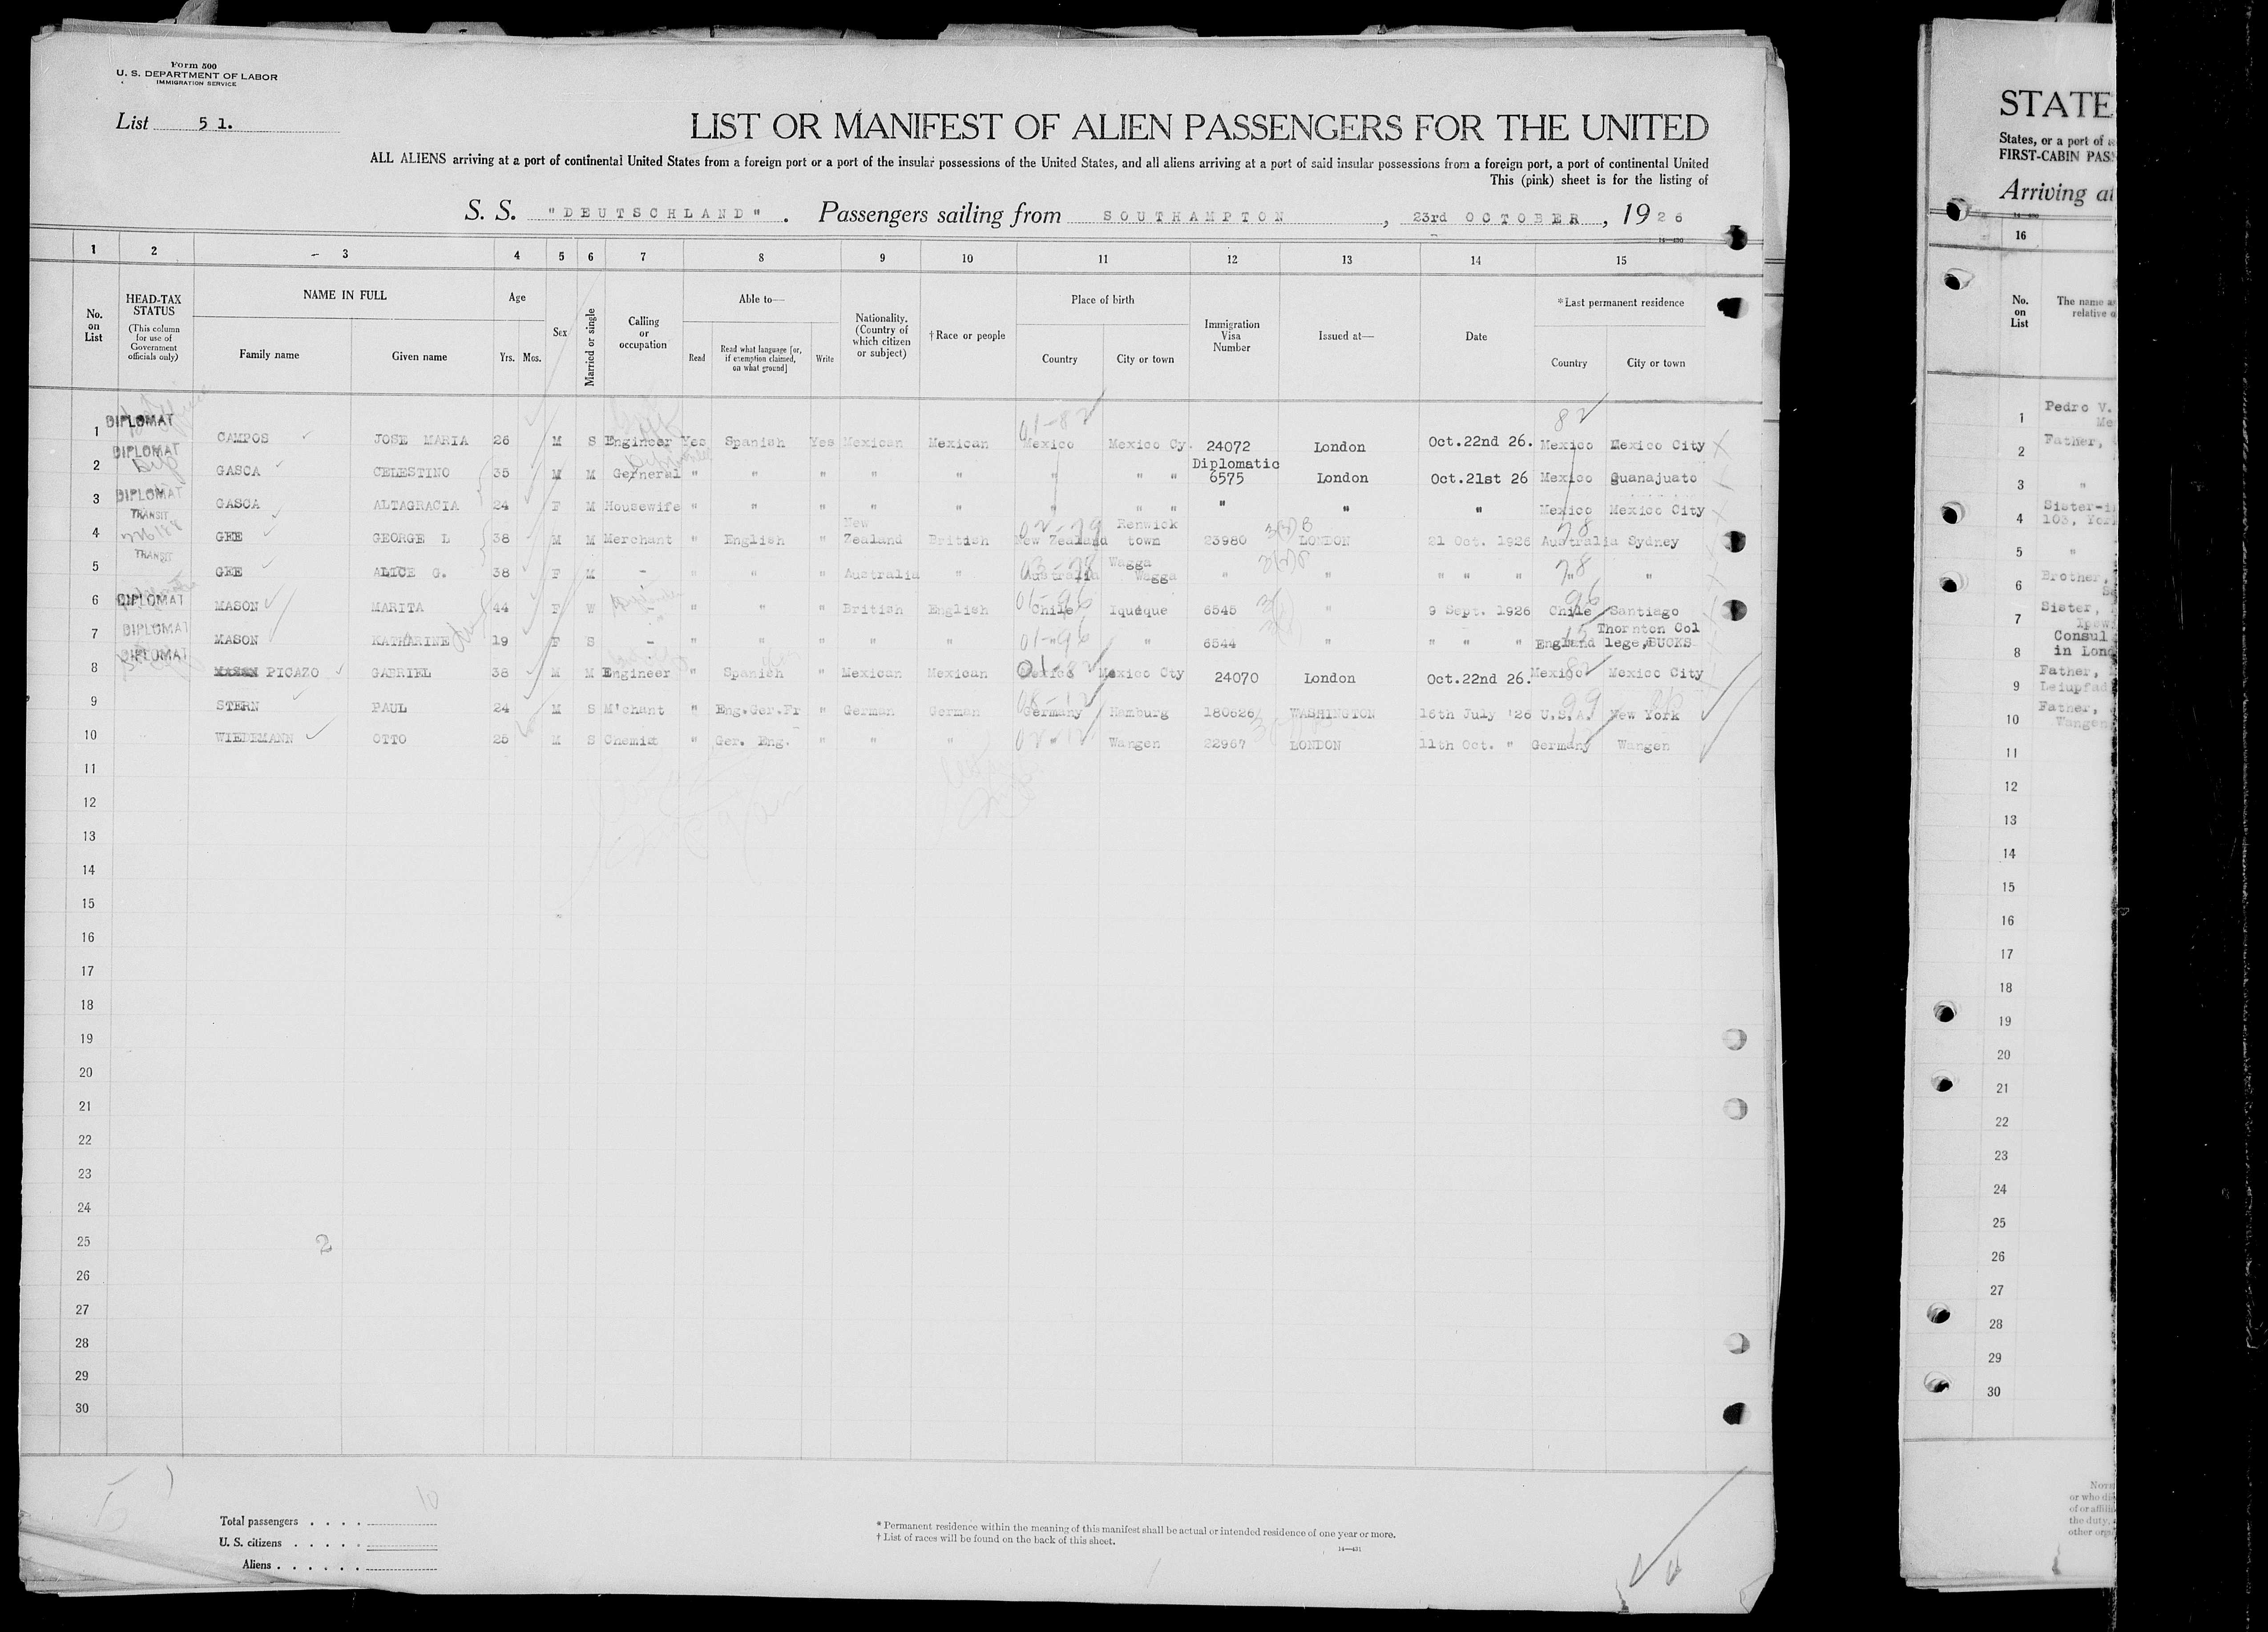 Form 500
U. S. DEPARTMENT OF LABOR
IMMIGRATION SERVICE
List 51.
LIST OR MANIFEST OF ALIEN PASSENGERS FOR THE UNITED
ALL ALIENS arriving at a port of continental United States from a foreign port or a port of the insular possessions of the United States, and all aliens arriving at a port of said insular possessions from a foreign port, a port of continental United
This (pink) sheet is for the listing of
S. S. "DEUTSCHLAND". Passengers sailing from SOUTHAMPTON, 23rd OCTOBER, 1926
1 2 3 4 5 6 7 8 9 10 11 12 13 14 15
No. on List
HEAD-TAX STATUS (This column for use of Government officials only)
NAME IN FULL Family name Given name
Age Yrs. Mos.
Sex
Married or single
Calling or occupation
Able to— Read Read what language [or, if exemption claimed, on what ground] Write
Nationality. (Country of which citizen or subject)
† Race or people
Place of birth Country City or town
Immigration Visa Number
Issued at—
Date
*Last permanent residence Country City or town
1 DIPLOMAT CAMPOS JOSE MARIA 26 M S Engineer Yes Spanish Yes Mexican Mexican 01-82 Mexico Mexico Cy. 24072 London Oct.22nd 26. 82 Mexico Mexico City
2 DIPLOMAT GASCA CELESTINO 35 M M General " " " " " " " " Diplomatic 6575 London Oct.21st 26 Mexico Guanajuato
3 DIPLOMAT GASCA ALTAGRACIA 24 F M Housewife " " " " " " " " " " " Mexico Mexico City
4 TRANSIT GEE GEORGE L 38 M M Merchant " English " New Zealand British New Zealand Renwick town 23980 LONDON 21 Oct. 1926 78 Australia Sydney
5 TRANSIT GEE ALICE G. 38 F M - " " " Australia " Australia Wagga Wagga " " " " " 78 " "
6 DIPLOMAT MASON MARITA 44 F W - " " " British English 01-96 Chile Iqueque 6545 " 9 Sept. 1926 96 Chile Santiago
7 DIPLOMAT MASON KATHARINE 19 F S - " " " " " 01-96 " " 6544 " " " " England Thornton College, BUCKS
8 DIPLOMAT PICAZO GABRIEL 38 M M Engineer " Spanish " Mexican Mexican 01-82 Mexico Mexico Cty 24070 London Oct.22nd 26. Mexico Mexico City
9 STERN PAUL 24 M S M'chant " Eng.Ger.Fr " German German Germany Hamburg 180626 WASHINGTON 16th July '26 99 U.S.A. New York
10 WIEDEMANN OTTO 25 M S Chemist " Ger. Eng. " " " " Wangen 22967 LONDON 11th Oct. " Germany Wangen
11
12
13
14
15
16
17
18
19
20
21
22
23
24
25 2
26
27
28
29
30
Total passengers 10
U. S. citizens
Aliens
* Permanent residence within the meaning of this manifest shall be actual or intended residence of one year or more.
† List of races will be found on the back of this sheet.
14—431
STATE
States, or a port of
FIRST-CABIN PAS
Arriving at
16
No. on List
The name a
relative o
1 Pedro V.
Me
2 Father,
3 "
4 Sister-i
103, York
5 "
6 Brother,
7 Sister,
8 Consul
in Lond
9 Father,
Leiupfad
10 Father,
Wangen
11
12
13
14
15
16
17
18
19
20
21
22
23
24
25
26
27
28
29
30
NOTE
or who di
of or affili
the duty,
other orga